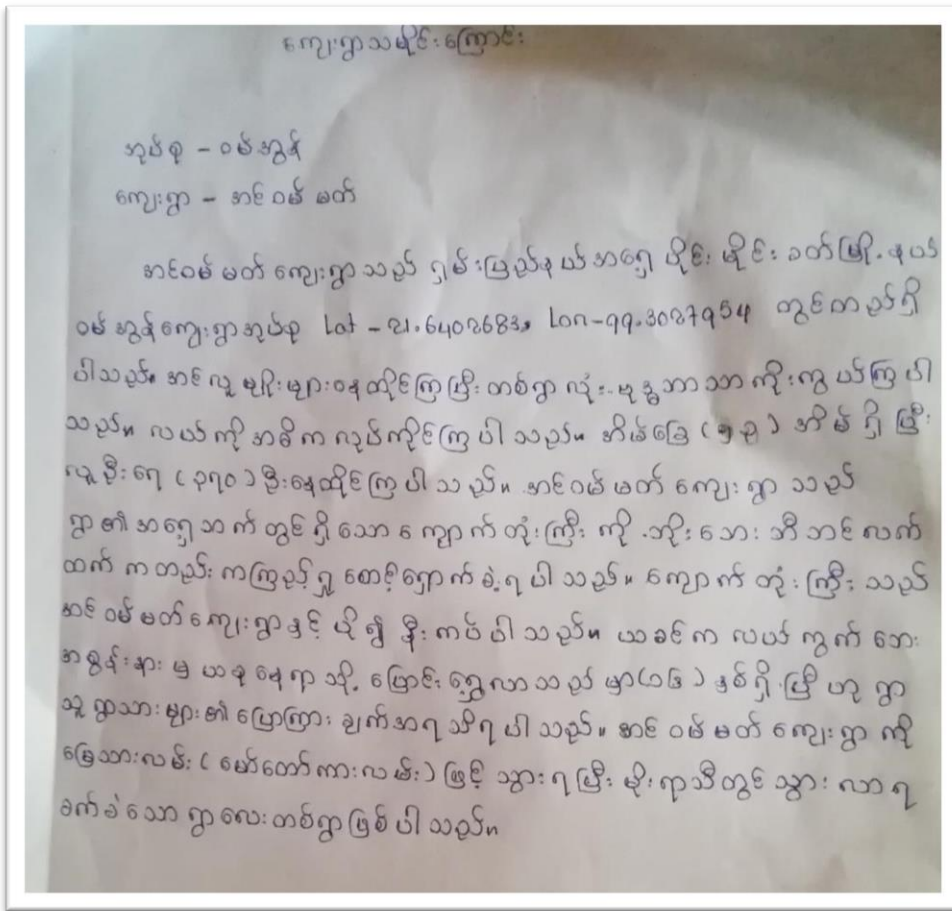 ကျေးရွာသမိုင်းကြောင်း
အုပ်စု - ဝမ်အွန်
ကျေးရွာ - အင်ဝမ်မတ်
အင်ဝမ်မတ်ကျေးရွာသည် ရှမ်းပြည်နယ်အရှေ့ပိုင်း မိုင်းခတ်မြို့နယ်
ဝမ်အွန်ကျေးရွာအုပ်စု Lat - 21.6402683, Lon-99.3027954 တွင်တည်ရှိ
ပါသည်။ အင်လူမျိုးများနေထိုင်ကြပြီး တစ်ရွာလုံး ဗုဒ္ဓဘာသာကိုးကွယ်ကြပါ
သည်။ လယ်ကိုအဓိကလုပ်ကိုင်ကြပါသည်။ အိမ်ခြေ (၅၃) အိမ်ရှိပြီး
လူဦးရေ (၃၇၀) ဦးနေထိုင်ကြပါသည်။ အင်ဝမ်မတ်ကျေးရွာသည်
ရွာ၏အရှေ့ဘက်တွင်ရှိသောကျောက်တုံးကြီးကို ဘိုးဘေးဘီဘင်လက်
ထက်ကတည်းကကြည့်ရှုစောင့်ရှောက်ခဲ့ရပါသည်။ ကျောက်တုံးကြီးသည်
အင်ဝမ်မတ်ကျေးရွာနှင့်ပို၍နီးကပ်ပါသည်။ ယခင်ကလယ်ကွက်ဘေး
အစွန်းနားမှယခုနေရာသို့ပြောင်းရွှေ့လာသည်မှာ နှစ်ရှိပြီဟုရွာ
သူရွာသားများ၏ပြောကြားချက်အရသိရပါသည်။ အင်ဝမ်မတ်ကျေးရွာကို
မြေသားလမ်း (မော်တော်ကားလမ်း) ဖြင့်သွားရပြီး မိုးရာသီတွင်သွားလာရ
ခက်ခဲသောရွာလေးတစ်ရွာဖြစ်ပါသည်။